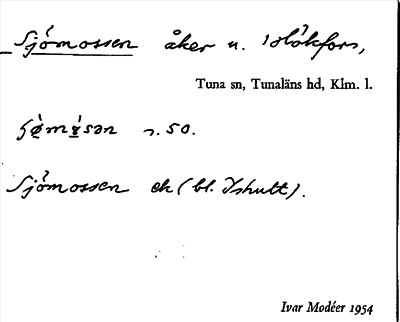 Sjömossen åker u. Blåkfors,
Tuna sn, Tunaläns hd, Klm. l.
s. 50.
Sjömossen ek (bl. Ishult).
Ivar Modéer 1954